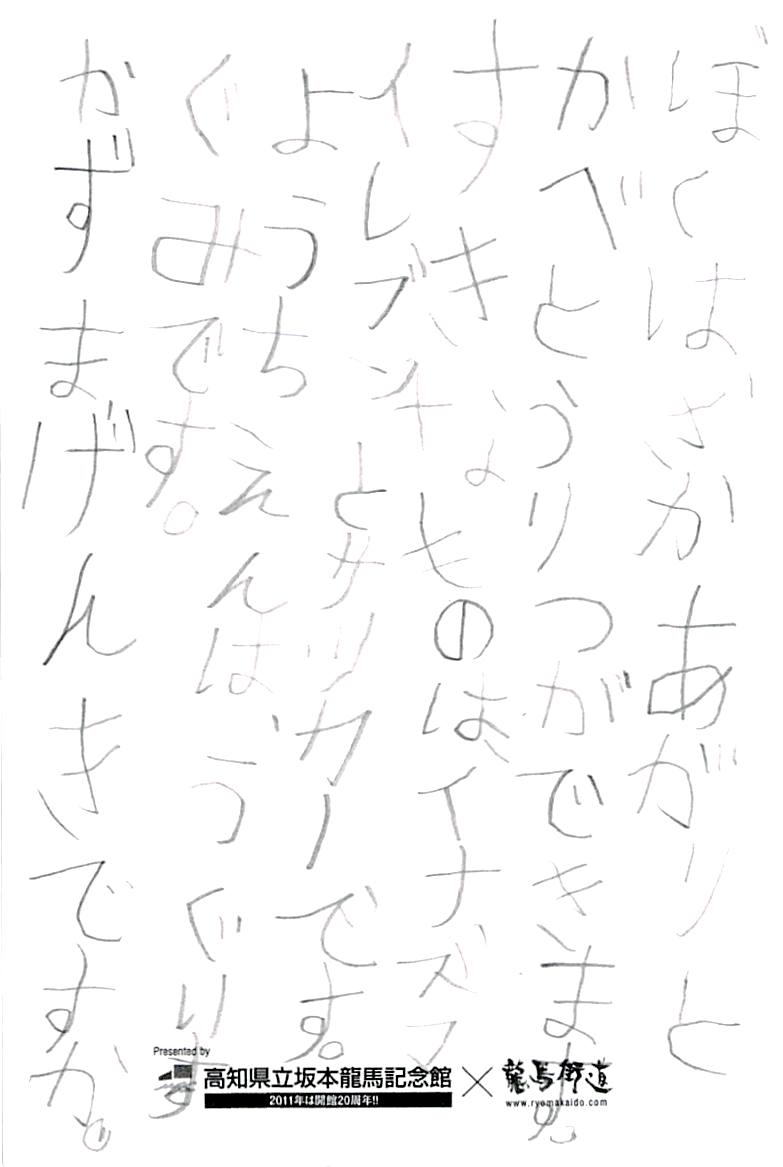 ぼくはさかあがりと
かべとうりつができます。
すきなものは、イナズマ
イレブンとサッカーです。
ようちえんはうぐりす
ぐみです。
かずまげんきですか。
Presented by
高知県立坂本龍馬記念館
2011年は開館20周年!!
×
龍馬街道
www.ryomakaido.com